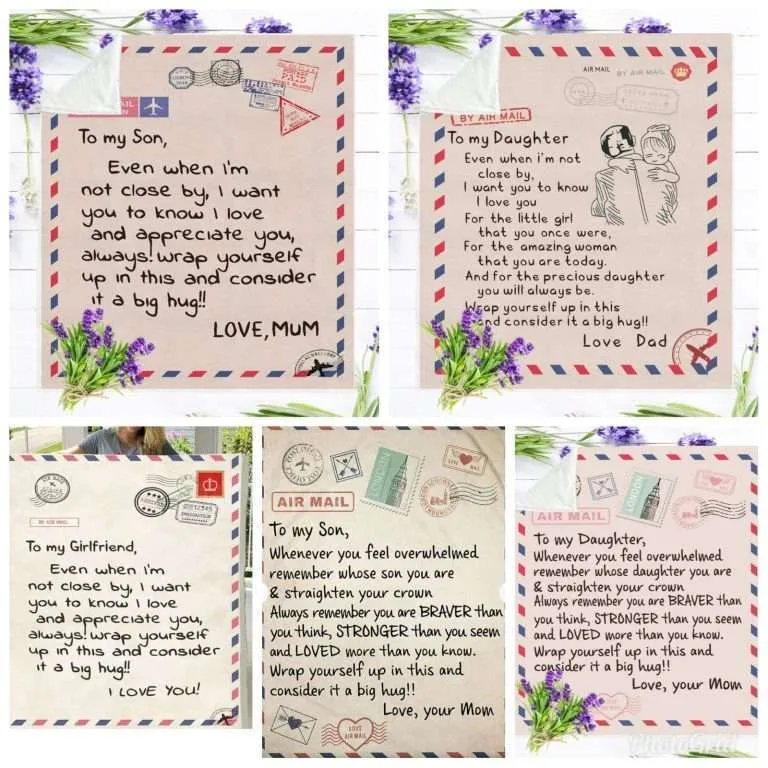 AIL
PAID
To my Son,
Even when i'm
not close by, I want
you to know I love
and appreciate you,
always! wrap yourself
up in this and consider
it a big hug!!
LOVE, MUM
AIR MAIL
BY AIR MAIL
BY AIR MAIL
To my Daughter
Even when i'm not
close by,
I want you to know
I love you
For the little girl
that you once were,
For the amazing woman
that you are today.
And for the precious daughter
you will always be.
Wrap yourself up in this
and consider it a big hug!!
Love Dad
BY AIR MAIL
To my Girlfriend,
Even when i'm
not close by, I want
you to know I love
and appreciate you,
always! wrap yourself
up in this and consider
it a big hug!!
I LOVE YOU!
LONDON
AIR MAIL
To my Son,
Whenever you feel overwhelmed
remember whose son you are
& straighten your crown
Always remember you are BRAVER than
you think, STRONGER than you seem
and LOVED more than you know.
Wrap yourself up in this and
consider it a big hug!!
Love, your Mom
LOVE
AIR MAIL
LONDON
AIR MAIL
To my Daughter,
Whenever you feel overwhelmed
remember whose daughter you are
& straighten your crown
Always remember you are BRAVER than
you think, STRONGER than you seem
and LOVED more than you know.
Wrap yourself up in this and
consider it a big hug!!
Love, your Mom
PhotoGrid